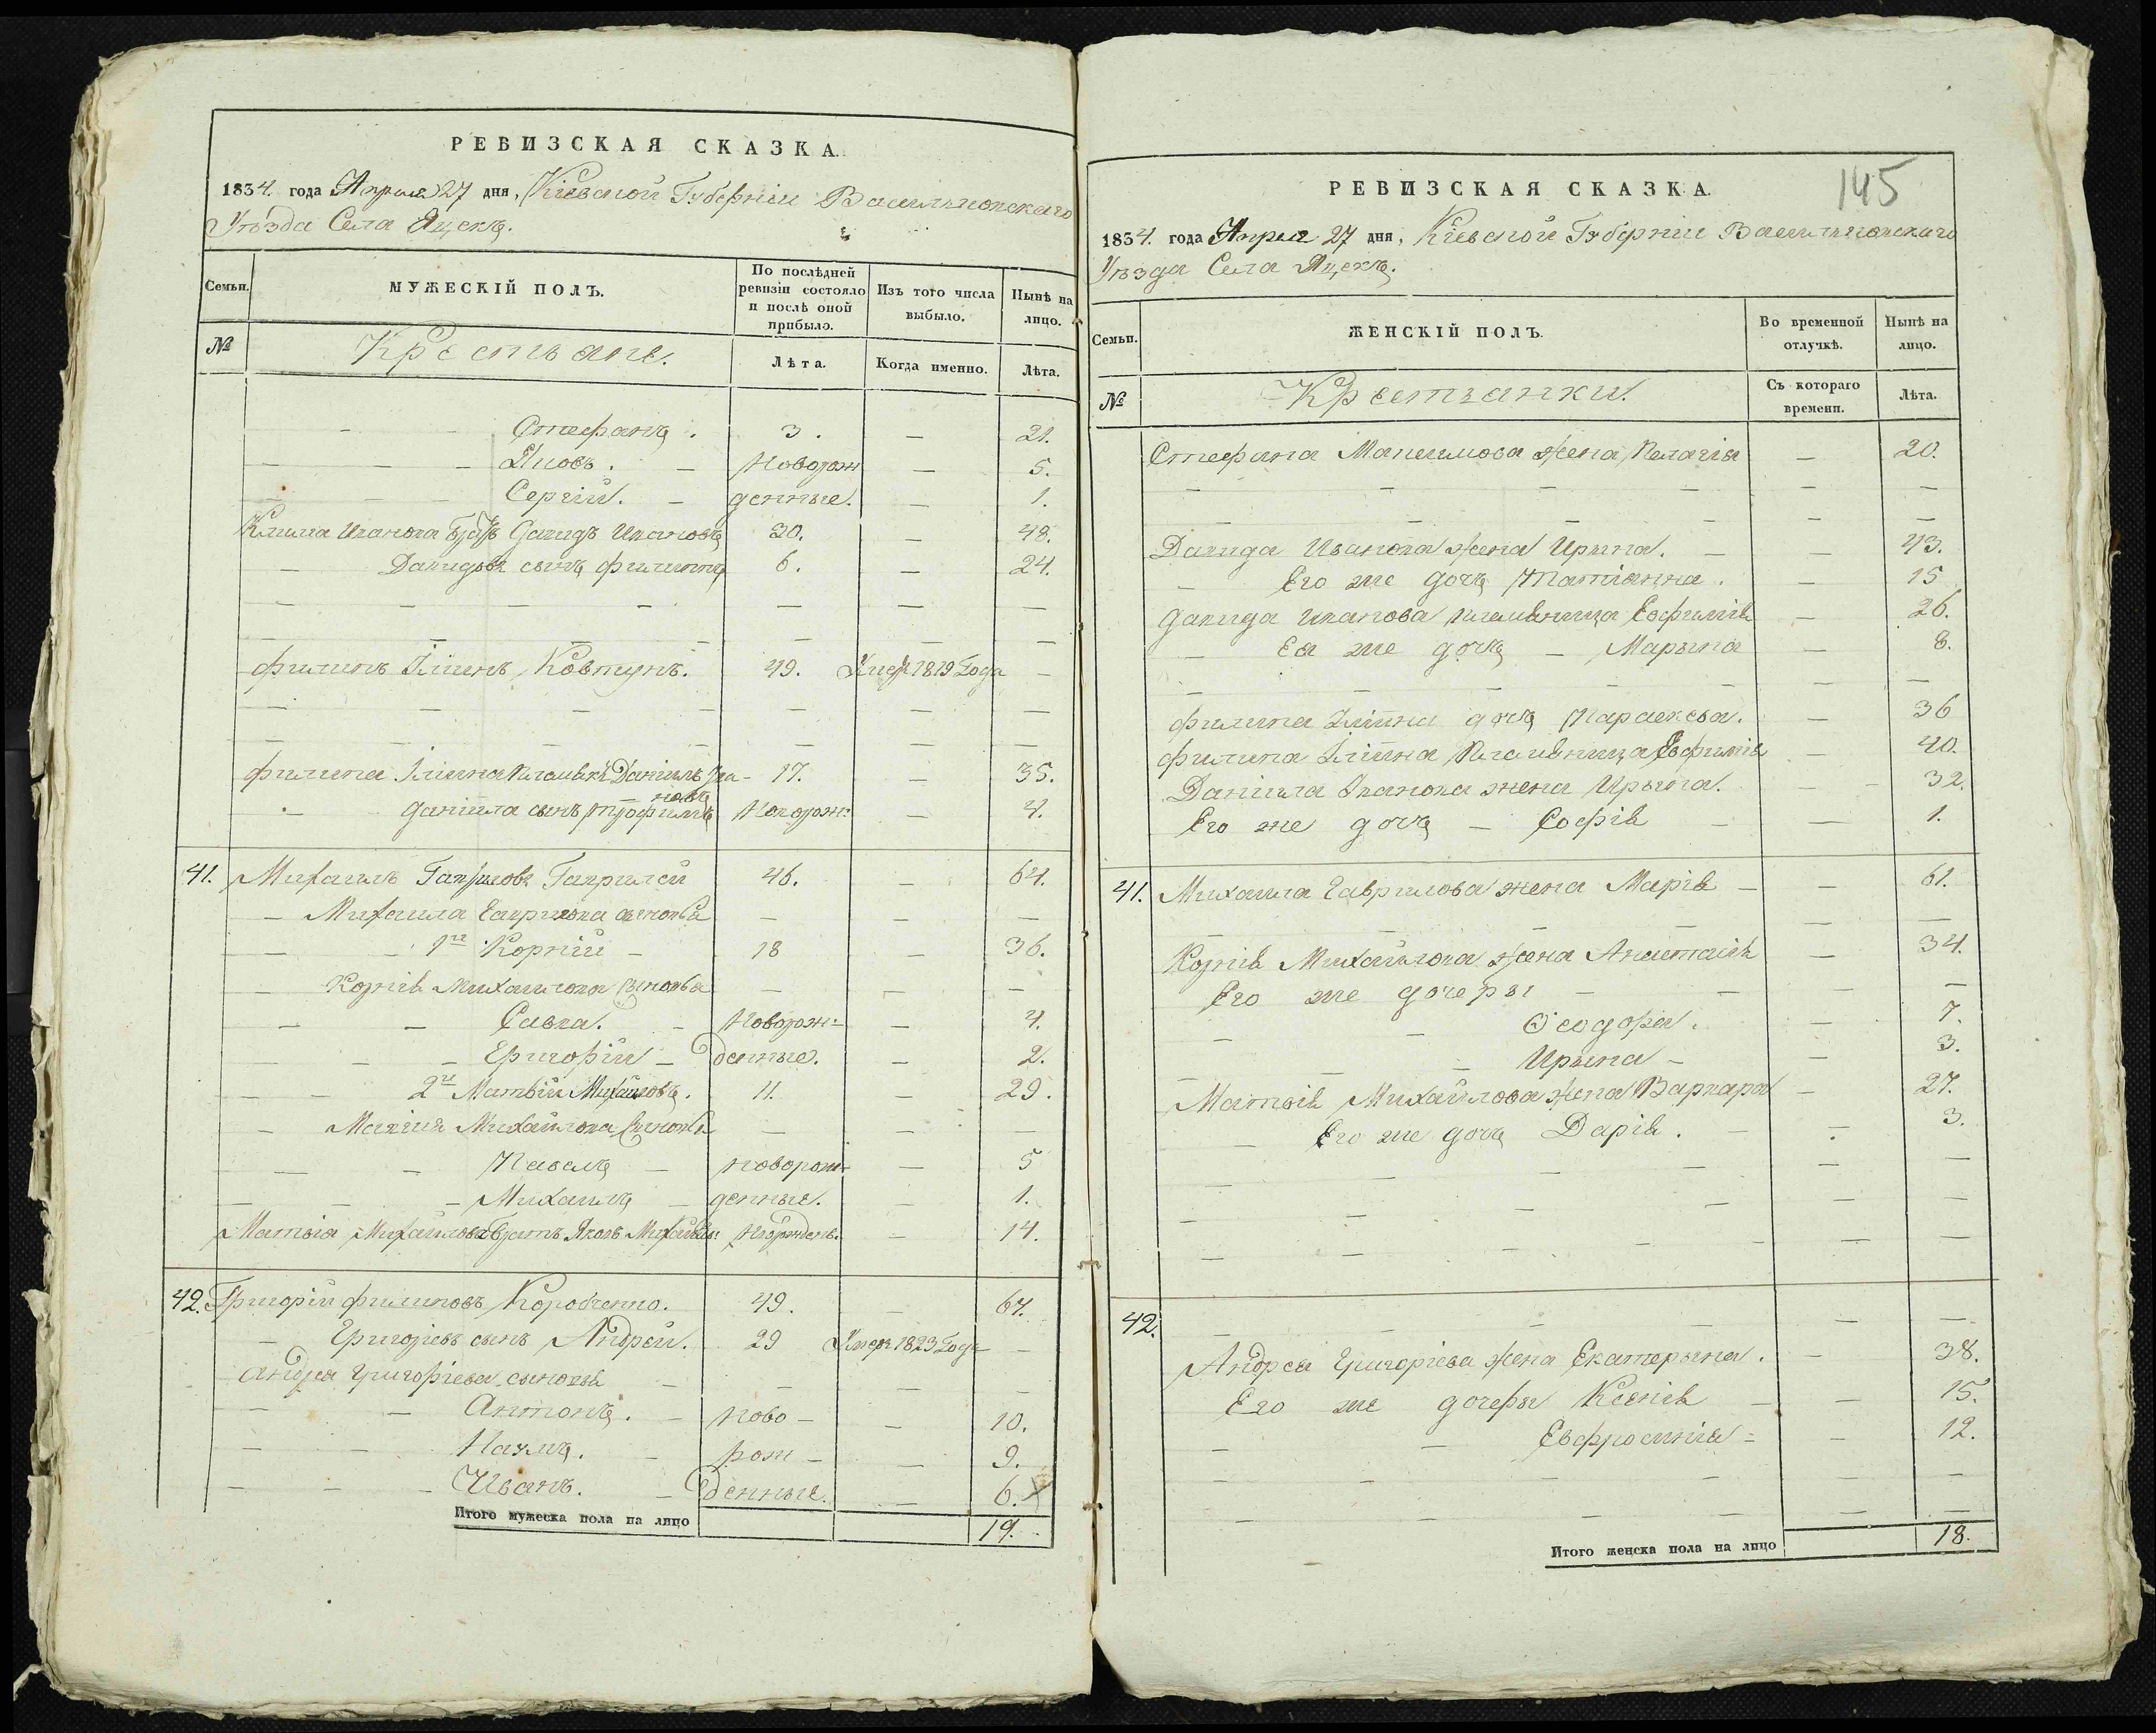 РЕВИЗСКАЯ СКАЗКА.
1834. года Апреля 27 дня, Кіевской Губерніи Васильковскаго
Уѣзда Села Яцекъ.
Семьи.
МУЖЕСКІЙ ПОЛЪ.
По послѣдней ревизіи состояло и послѣ оной прибыло.
Изъ того числа выбыло.
Нынѣ на лицо.
№
Крестьяне.
Лѣта.
Когда именно.
Лѣта.
— — Стефанъ. 3. — 21.
— — — Яковъ. — Новорож — 5.
— — — Сергій. — денные. — 1.
Клима Иванова Братъ Давидъ Ивановъ 30. — 48.
— Давидовъ сынъ филиппъ 6. — 24.
— — — — — — —
— — — — — — —
филипъ Iлiинъ Ковтунъ. 49. Умеръ 1819 Года —
— — — — — — —
— — — — — — —
филипа Iлiина племѣн: Данiилъ Ива- 17. — 35.
новъ
— данiила сынъ трофимъ Новорож: — 4.
41. Михаилъ Гавриловъ Гаврилей 46. — 64.
— Михаила Гаврилова сыновья — — —
— — 1й Корнiй — 18 — 36.
— Корнiя Михаилова сыновья — — —
— — Савка. — Новорож= — 4.
— — — Григорiй — денные. — 2.
— — 2й Матвiй Михайловъ. 11. — 29.
— Матвiя Михайлова сыновья — — —
— — Павелъ — новорож= — 5
— — — Михаилъ — денные. — 1.
Матвiя Михайлова братъ Яковъ Михайловъ: — 14.
42. Григорiй филиповъ Коробченко. 49. — 67.
— Григорiевъ сынъ Андрей. 29 Умеръ 1823 Года —
андрея Григорiева сыновья — — — —
— — Антонъ. — ново— — 10.
— — Наумъ. — рож— — 9.
— — — Иванъ. — денные. — 6.
Итого мужеска пола на лицо 19.
145
РЕВИЗСКАЯ СКАЗКА.
1834. года Апреля 27 дня, Кіевской Губерніи Васильковскаго
Уѣзда Села Яцекъ.
Семьи.
ЖЕНСКІЙ ПОЛЪ.
Во временной отлучкѣ.
Нынѣ на лицо.
№
Крестьянки.
Съ котораго времени.
Лѣта.
Стефана Максимова жена Пелагiя — 20.
— — — — — —
— — — — — —
Давида Иванова жена Ирина. — — 43.
— Его же дочь Татiанна. — 15
давида Иванова племѣница Евфимiя — 26.
— Ея же дочь — Марына — 8.
— — — — — —
филипа Iлiина дочь Параскева. — 36
филипа Iлiина племѣница Евфимiя — 40.
Данiила Иванова жена Ирына. — 32.
Его же дочь — Софiя — — 1.
41. Михаила Гаврилова жена Марiя — — 61.
— — — — — —
Корнiя Михайлова жена Анастасiя — 34.
Его же дочеры — — —
— — Ѳеодора. — 7.
— — — Ирына — — 3.
Матвiя Михайлова жена Варвара — 27.
— Его же дочь Дарiя. — — 3.
— — — — — —
— — — — — —
— — — — — —
42. — — — — — —
Андрея Григорiева жена Екатерына. — 38.
Его же дочеры Ксенiя — — 15.
— — Евфросинiя — — 12.
— — — — — —
— — — — — —
Итого женска пола на лицо 18.